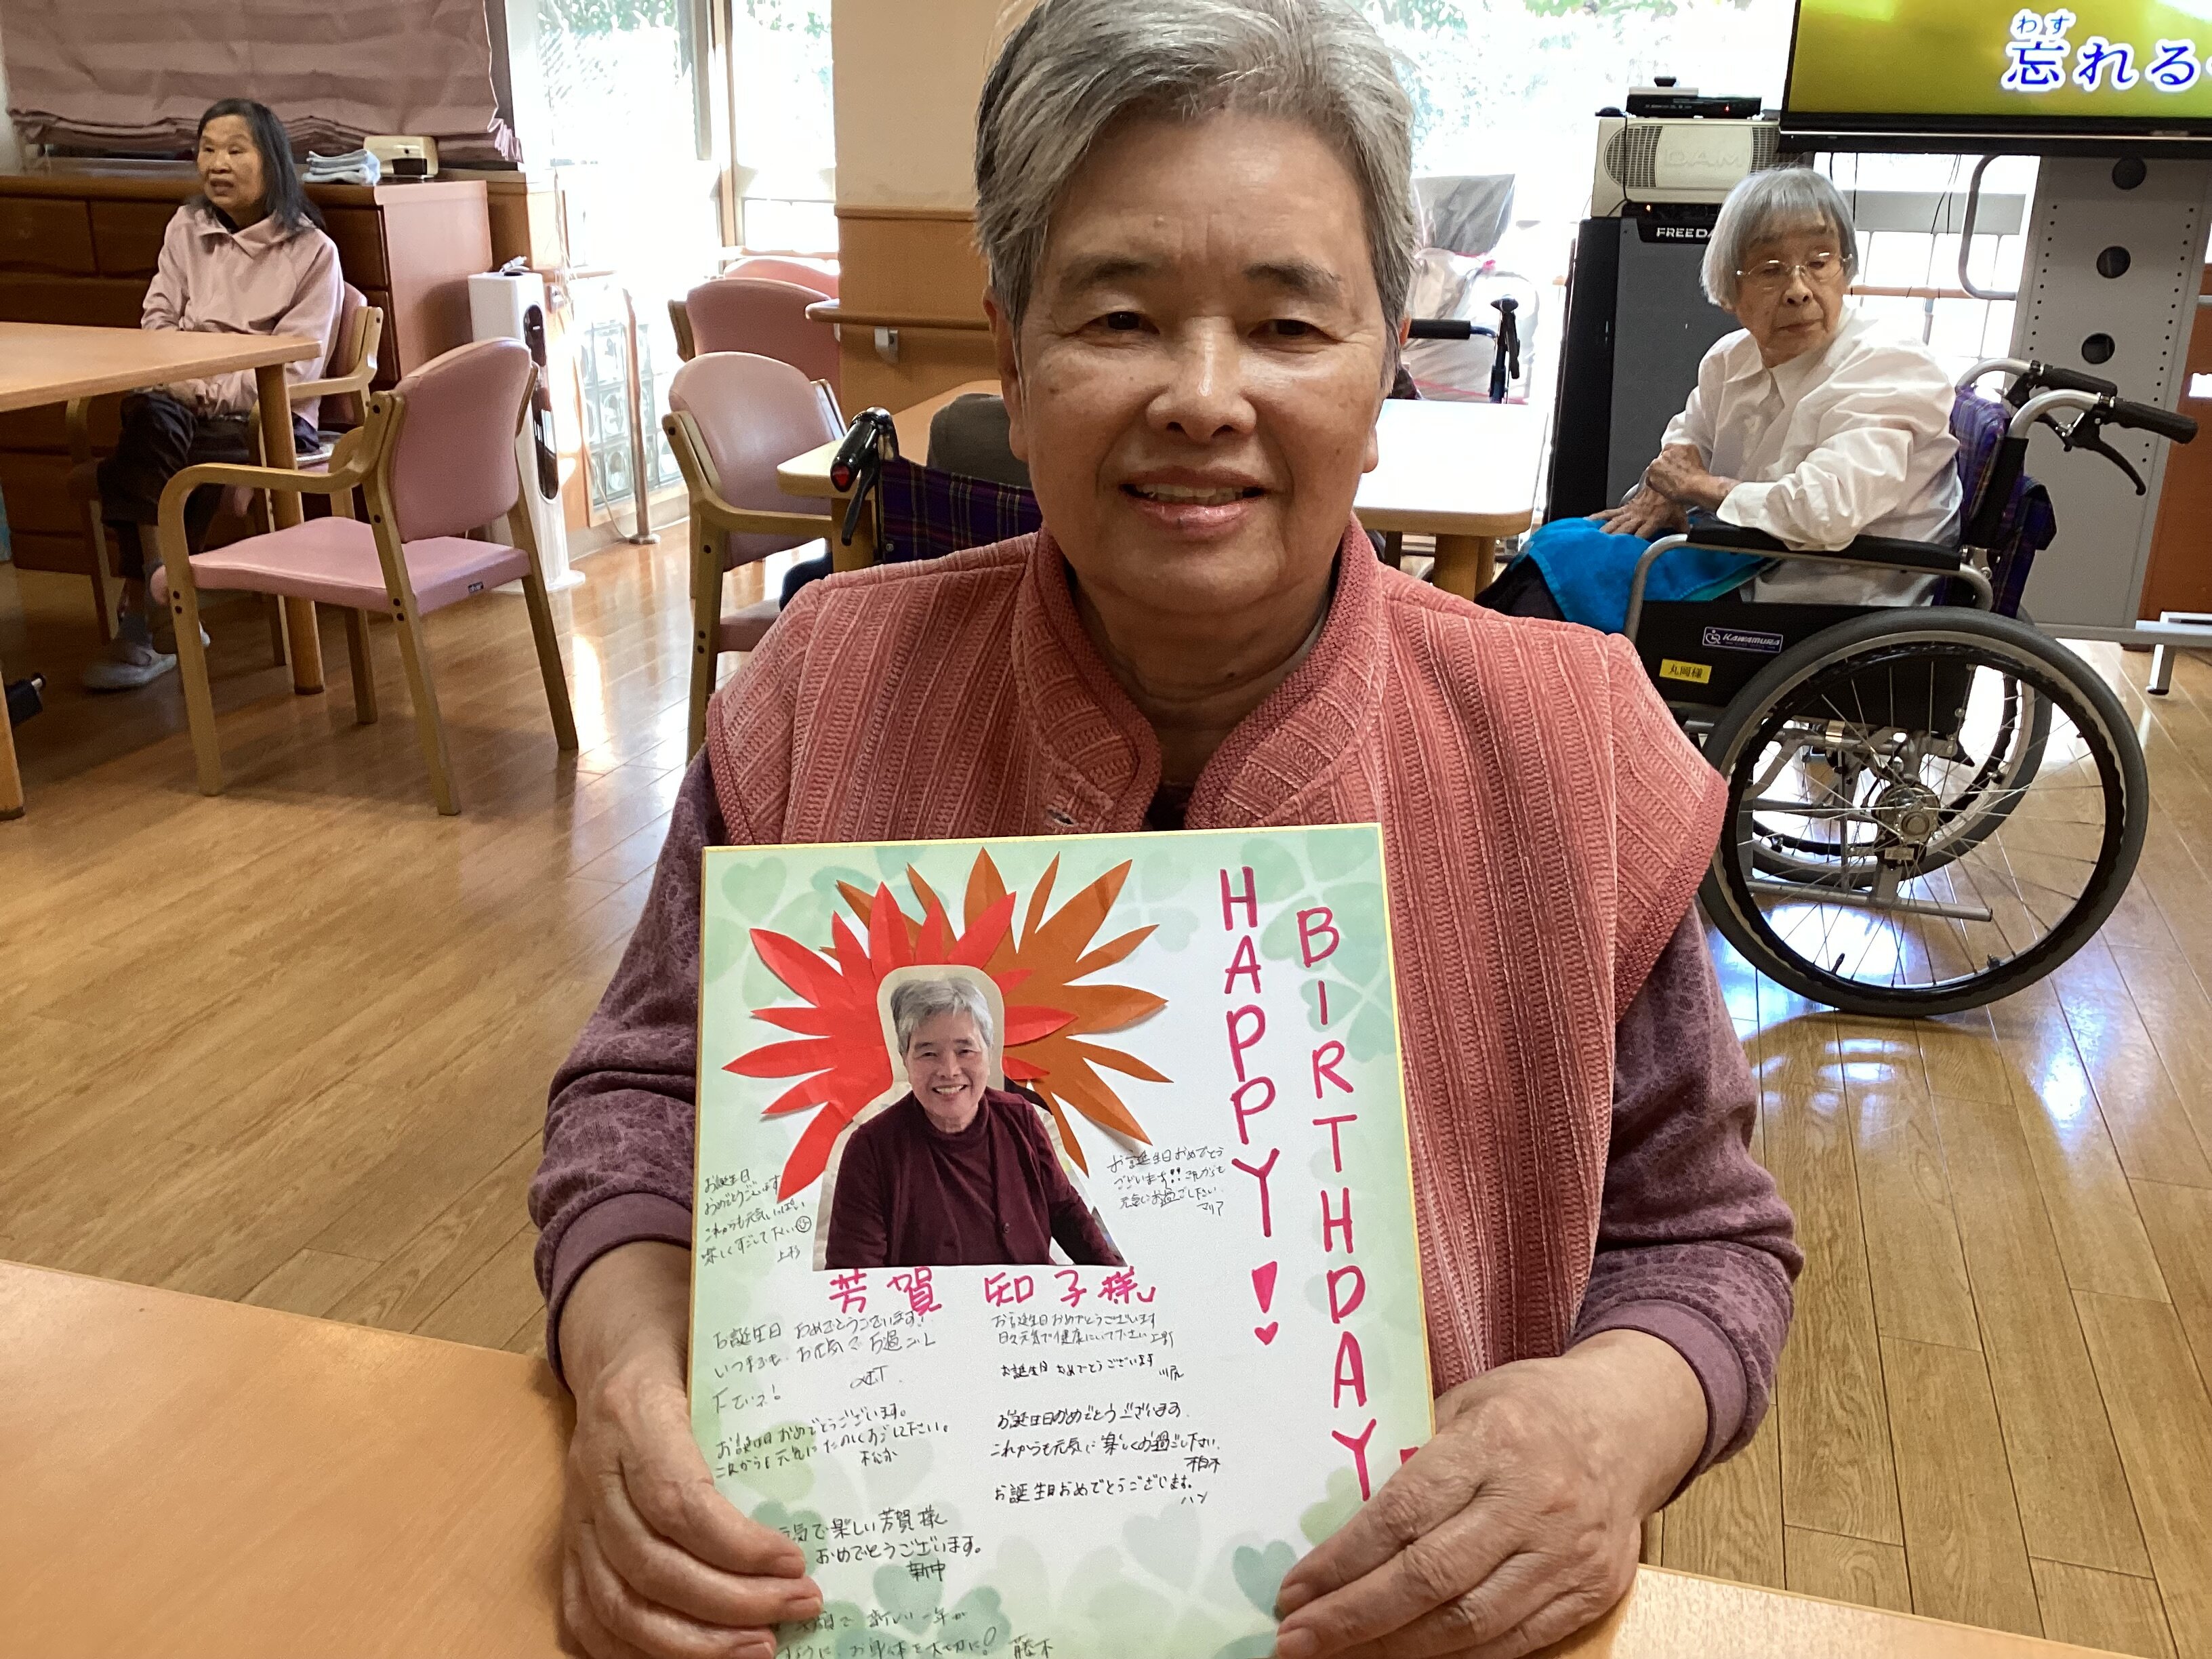 わす
忘れる
DAM
FREEDA
KAWAMURA
丸岡様
HAPPY!
BIRTHDAY
お誕生日
おめでとうございます
これからも元気いっぱい
楽しくすごして下さい
上杉
お誕生日おめでとう
ございます!!これからも
元気にお過ごし下さい
マリア
芳賀 知子様
お誕生日 おめでとうございます!
いつまでも、お元気でお過ごし
下さいネ!
お誕生日おめでとうございます
日々元気で健康にいて下さい
お誕生日おめでとうございます
川尻
お誕生日おめでとうございます。
これからも元気にたのしくすごして下さい。
松永
お誕生日おめでとうございます。
これからも元気に楽しくお過ごし下さい。
柏木
お誕生日おめでとうございます。
ハン
元気で楽しい芳賀様
おめでとうございます。
新中
笑顔で新しい一年が
ように、お身体を大切に!
藤本